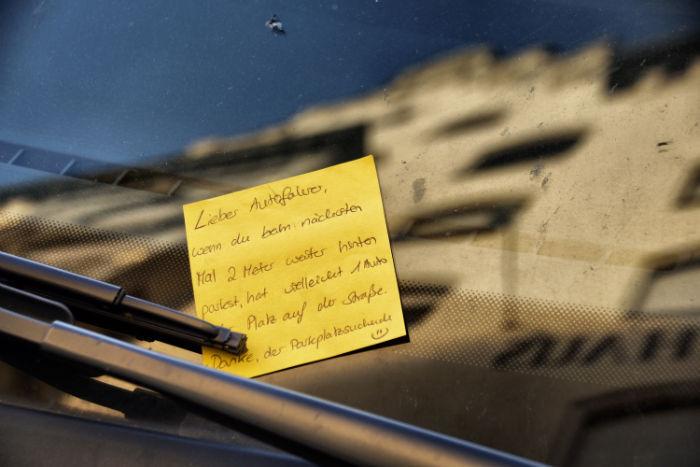 Lieber Autofahrer,
wenn du beim nächsten
Mal 2 Meter weiter hinten
parkst, hat vielleicht 1 Auto
Platz auf der Straße.
Danke, der Parkplatzsuchende